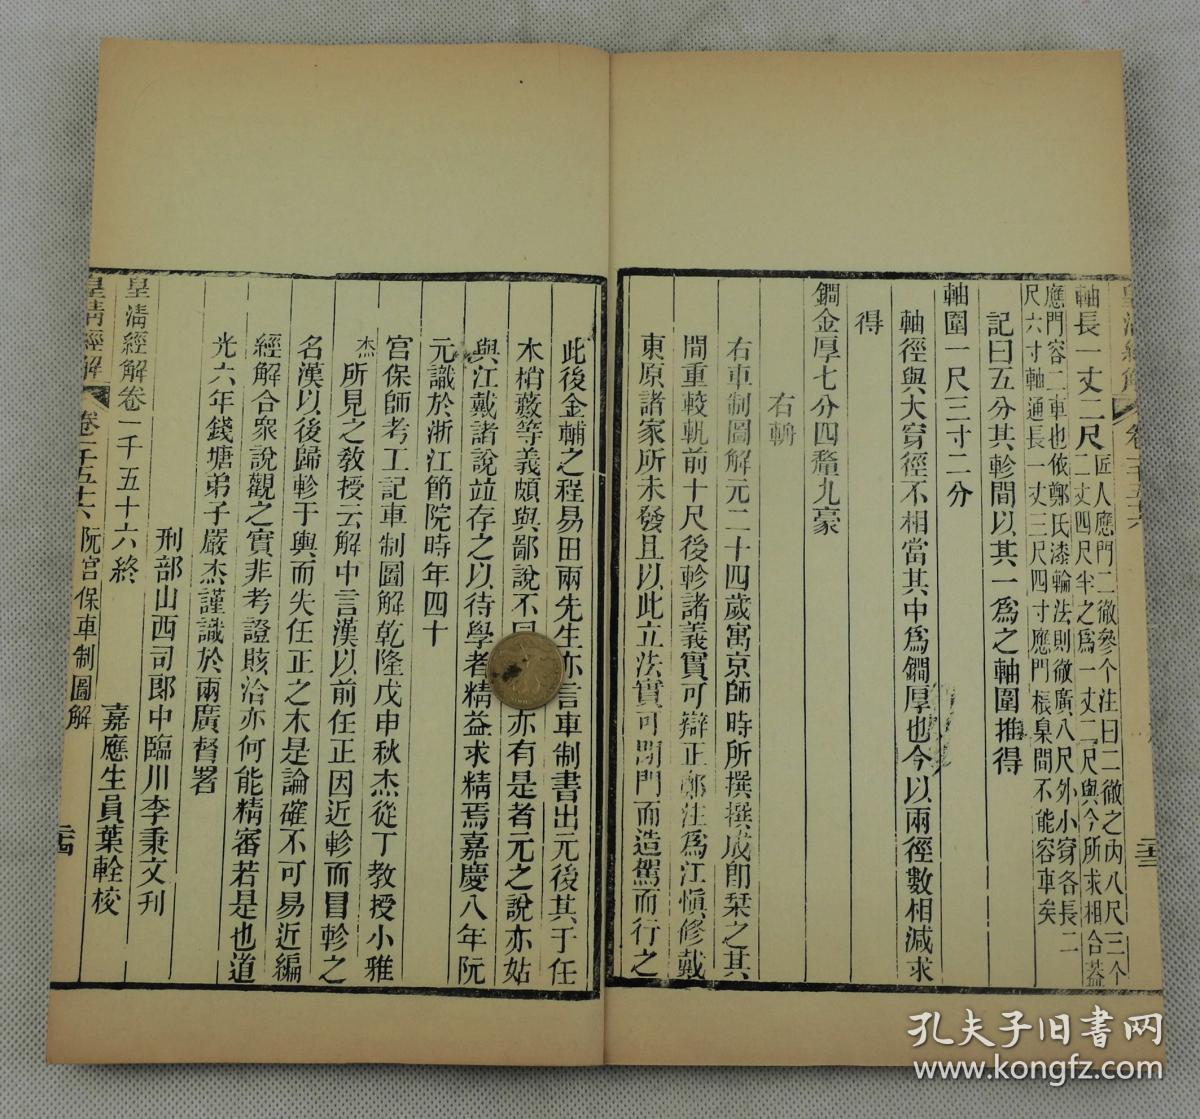 軸長一丈二尺匠人應門二徹參个注曰二徹之內八尺三个
二丈四尺半之爲一丈二尺與今所求相合蓋
應門容二車也依鄭氏漆輪法則徹廣八尺外小穿各長二
尺六寸軸通長一丈三尺四寸應門棖臬間不能容車矣
記曰五分其軫間以其一爲之軸圍推得
軸圍一尺三寸二分
軸徑與大穿徑不相當其中爲鐧厚也今以兩徑數相減求
得
鐧金厚七分四釐九豪
右輈
右車制圖解元二十四歲寓京師時所撰撰成卽栞之其
間重較軓前十尺後軫諸義實可辯正鄭注爲江愼修戴
東原諸家所未發且以此立法實可閉門而造駕而行之
此後金輔之程易田兩先生亦言車制書出元後其于任
木梢藪等義頗與鄙說不同亦有是者元之說亦姑
與江戴諸說竝存之以待學者精益求精焉嘉慶八年阮
元識於浙江節院時年四十
宮保師考工記車制圖解乾隆戊申秋杰從丁教授小雅
杰所見之敎授云解中言漢以前任正因近軫而冒軫之
名漢以後歸軫于輿而失任正之木是論確不可易近編
經解合衆說觀之實非考證賅洽亦何能精審若是也道
光六年錢塘弟子嚴杰謹識於兩廣督署
刑部山西司郎中臨川李秉文刊
皇清經解卷一千五十六終
嘉應生員葉輇校
皇清經解
卷一千五十六
阮宮保車制圖解
孔夫子旧书网
www.kongfz.com